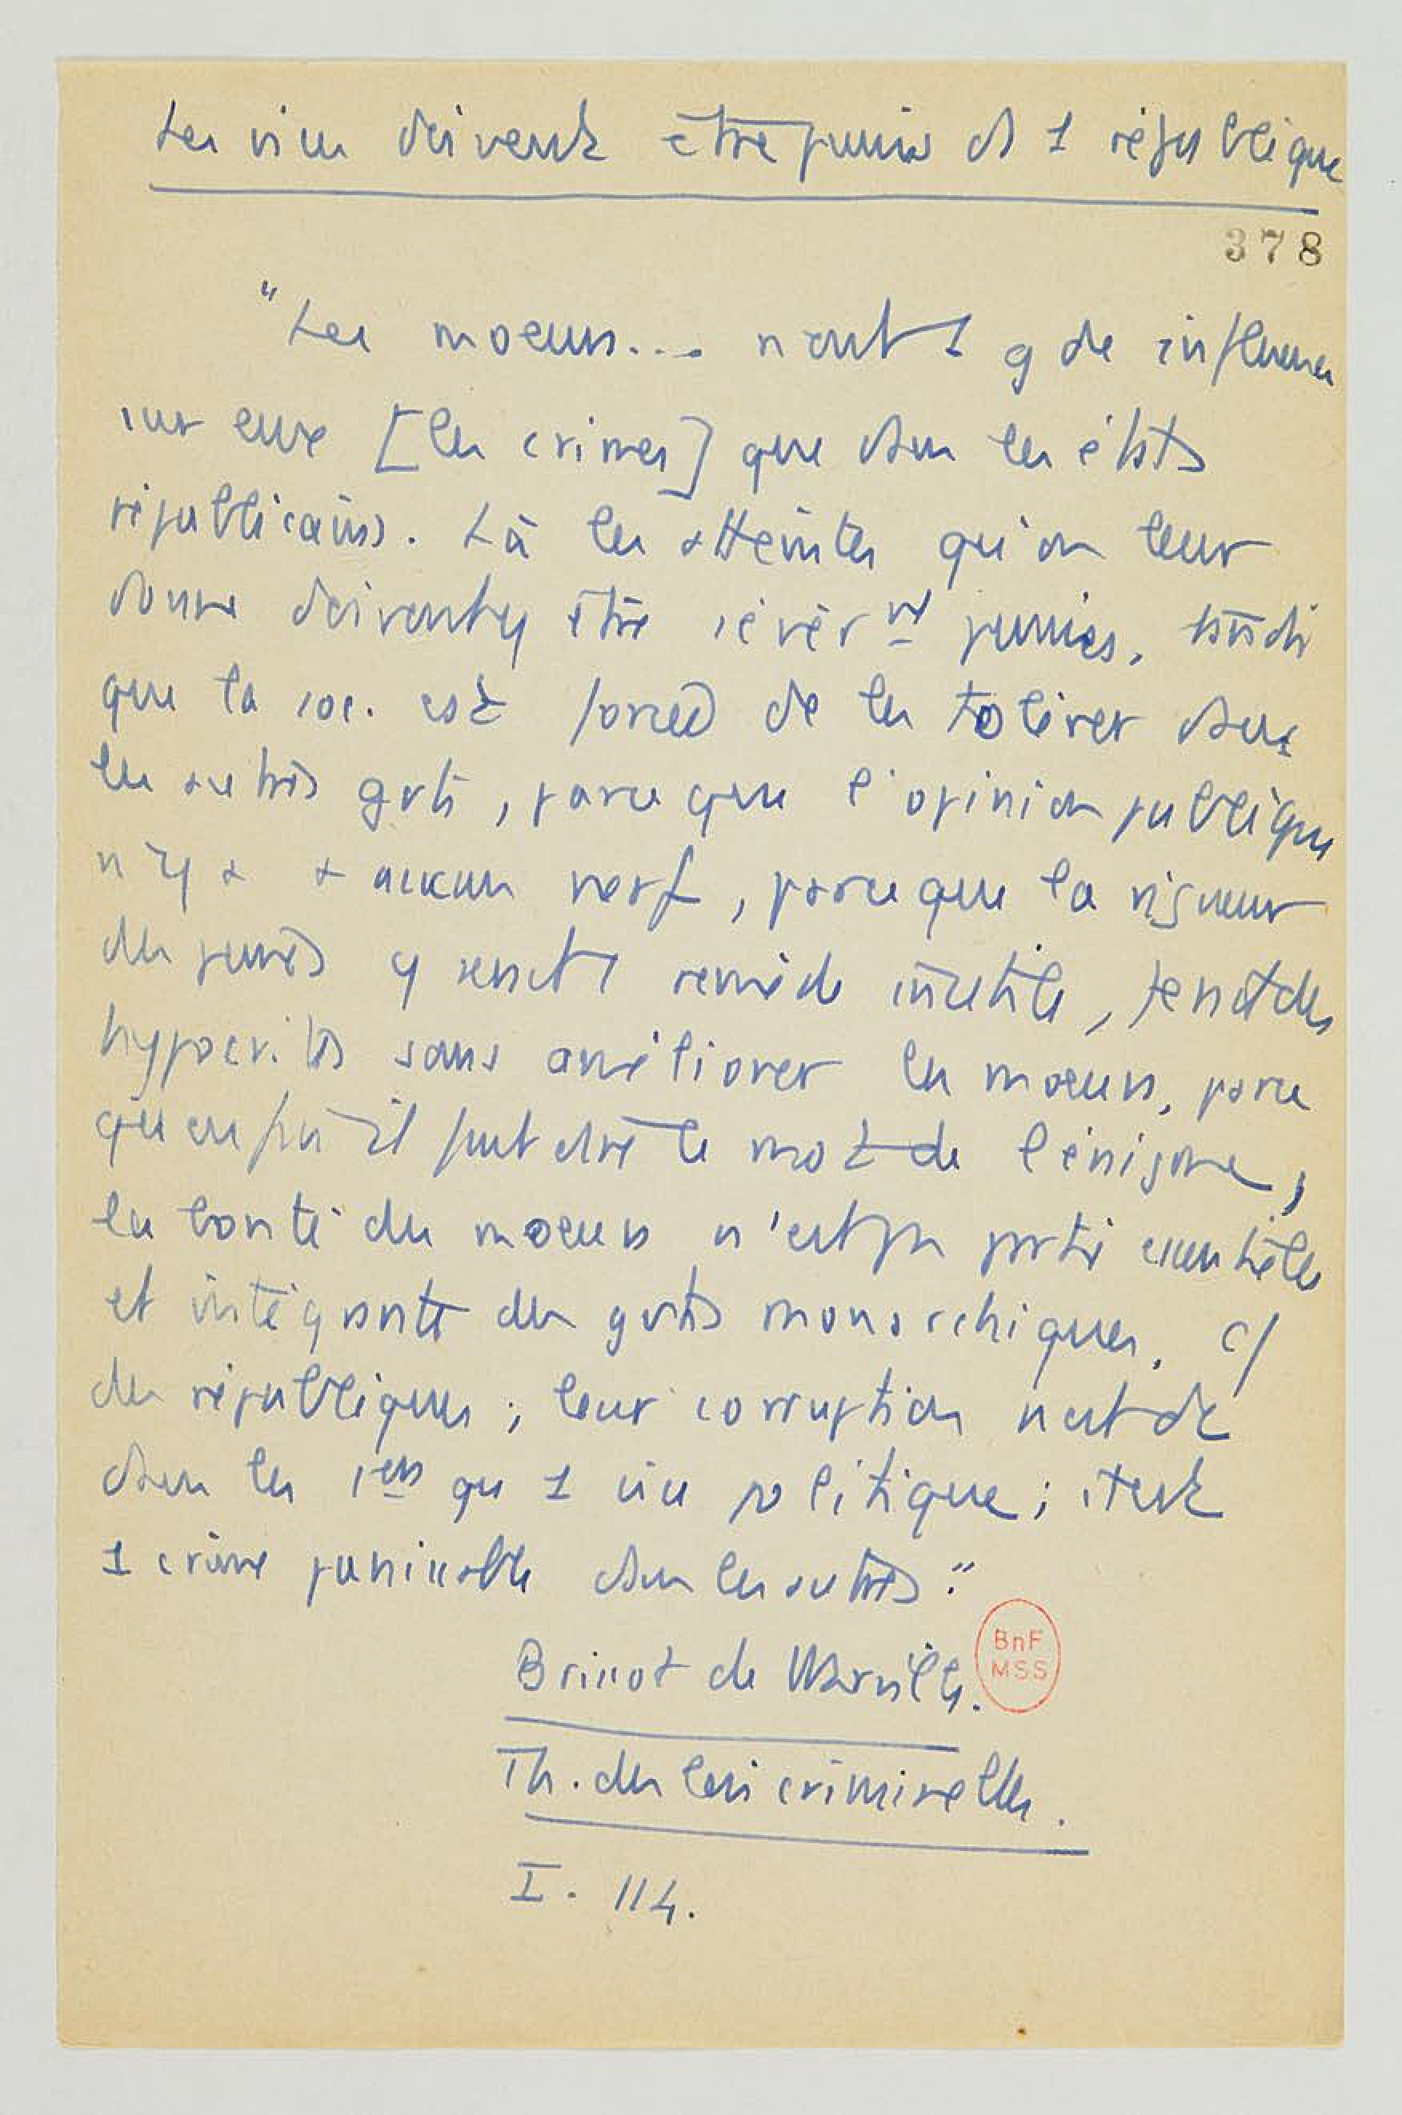 Les vices doivent être punis ds 1 république
378
"Les moeurs... n'ont 1 gde influence
sur eux [les crimes] que dans les états
républicains. Là les atteintes qu'on leur
donne doivent y être sévèrnt punies, tandis
que la soc. est forcée de les tolérer dans
les autres gvts, parce que l'opinion publique
n'y a + aucun nerf, parce que la rigueur
des peines y serait 1 remède inutile, ferait des
hypocrites sans améliorer les moeurs, parce
qu'enfin il faut dire le mot de l'énigme,
la bonté des moeurs n'est pas partie essentielle
et intégrante des gvts monarchiques, c/
des républiques; leur corruption n'est
dans les 1ers qu'1 vice politique; c'est
1 crime punissable dans les autres."
Brissot de Warville.
BnF
MSS
Th. des lois criminelles.
I. 114.